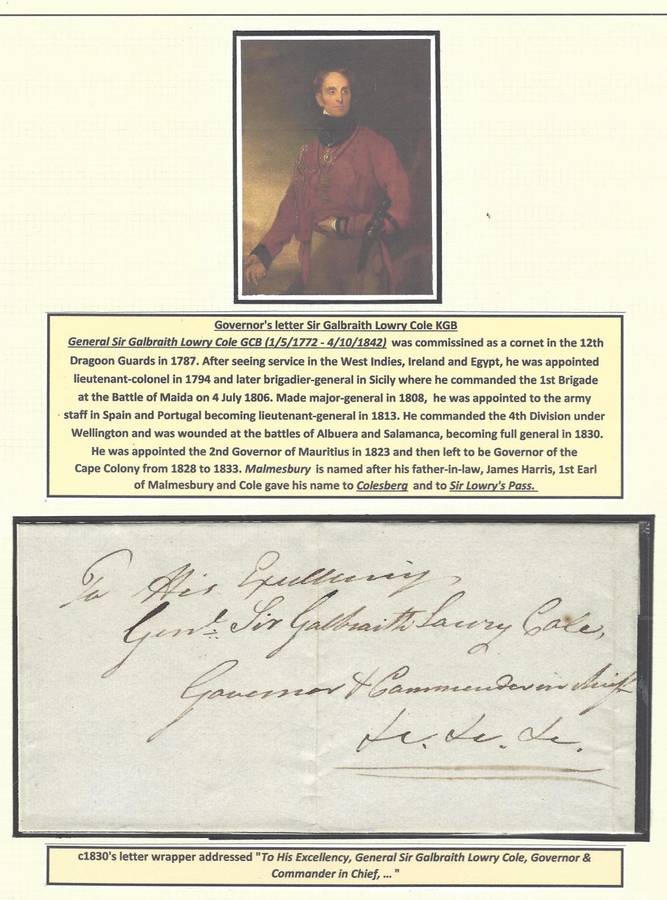 Governor's letter Sir Galbraith Lowry Cole KGB
General Sir Galbraith Lowry Cole GCB (1/5/1772 - 4/10/1842) was commissined as a cornet in the 12th
Dragoon Guards in 1787. After seeing service in the West Indies, Ireland and Egypt, he was appointed
lieutenant-colonel in 1794 and later brigadier-general in Sicily where he commanded the 1st Brigade
at the Battle of Maida on 4 July 1806. Made major-general in 1808, he was appointed to the army
staff in Spain and Portugal becoming lieutenant-general in 1813. He commanded the 4th Division under
Wellington and was wounded at the battles of Albuera and Salamanca, becoming full general in 1830.
He was appointed the 2nd Governor of Mauritius in 1823 and then left to be Governor of the
Cape Colony from 1828 to 1833. Malmesbury is named after his father-in-law, James Harris, 1st Earl
of Malmesbury and Cole gave his name to Colesberg and to Sir Lowry's Pass.
To His Excellency
Genl. Sir Galbraith Lowry Cole,
Governor & Commander in Chief
&c. &c. &c.
c1830's letter wrapper addressed "To His Excellency, General Sir Galbraith Lowry Cole, Governor &
Commander in Chief, ... "